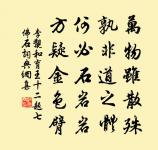 萬物雖散殊
孰非道之
何必石岩岩
方疑金色臂
李覯和育王十二題七
佛石詞典網